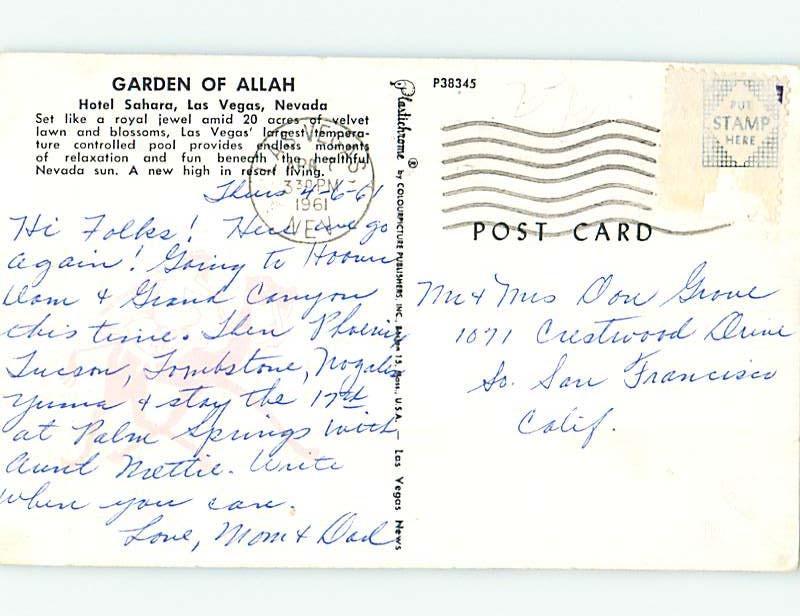 GARDEN OF ALLAH
Hotel Sahara, Las Vegas, Nevada
Set like a royal jewel amid 20 acres of velvet
lawn and blossoms, Las Vegas' largest tempera-
ture controlled pool provides endless moments
of relaxation and fun beneath the healthful
Nevada sun. A new high in resort living.
LAS VEGAS
330 PM
1961
NEV.
Thurs 4-6-61
Hi Folks! Here we go
again! Going to Hoover
Dam & Grand Canyon
this time. Then Phoenix
Tucson, Tombstone, Nogales
Yuma & stay the 17th
at Palm Springs with
Aunt Mettie. Write
when you can.
Love, Mom & Dad
Plastichrome ® by COLOURPICTURE PUBLISHERS, INC., Boston 15, Mass., U.S.A. — Las Vegas News
P38345
PUT
STAMP
HERE
POST CARD
Mr & Mrs Don Grove
1071 Crestwood Drive
So. San Francisco
Calif.